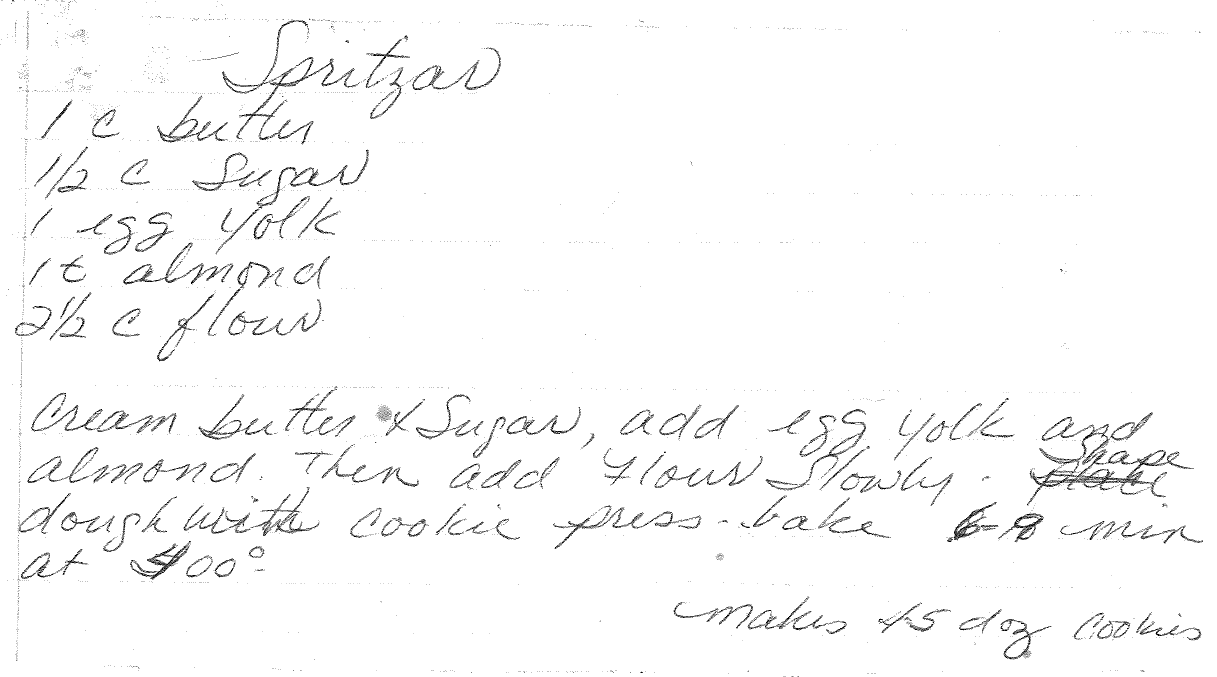 Spritzar
1 c butter
1/2 c Sugar
1 egg yolk
1 t almond
2 1/2 c flour
Cream butter & Sugar, add egg yolk and
almond. Then add Flour Slowly. Shape
dough with cookie press - bake 6-8 min
at 400°
makes 4-5 doz cookies